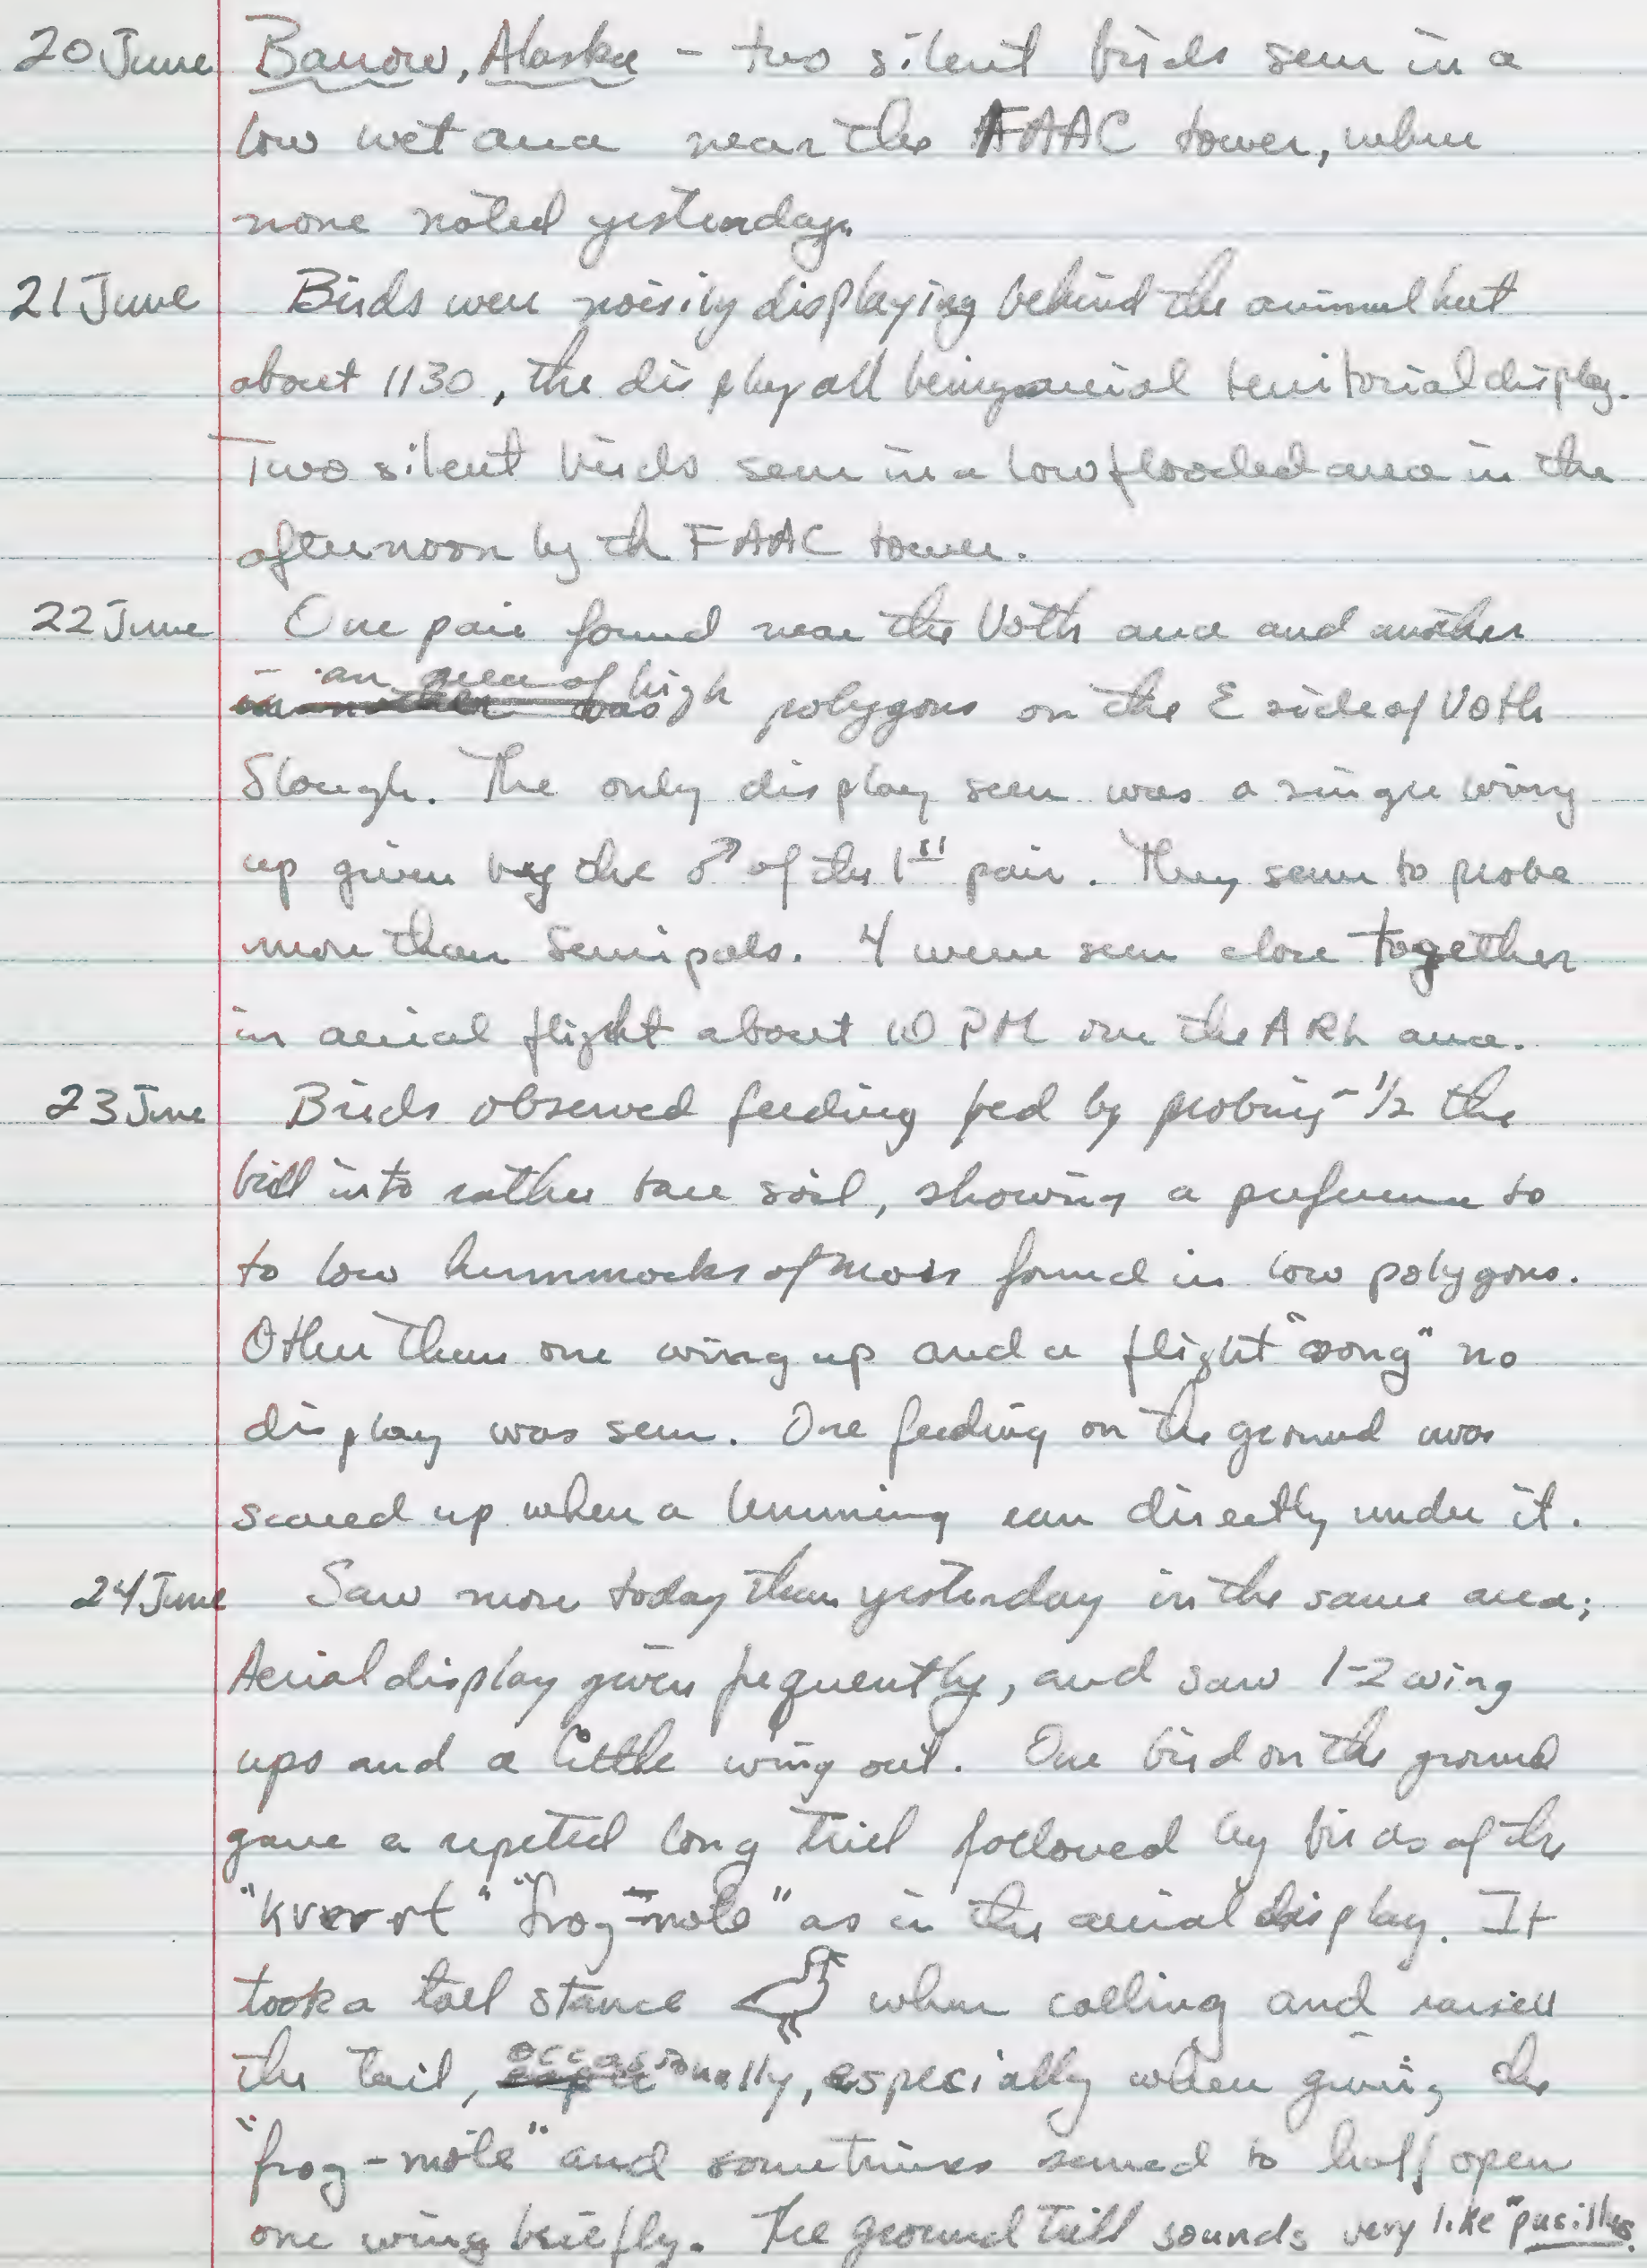 20 June Barrow, Alaska - two silent birds seen in a
low wet area near the FAAC tower, where
none noted yesterday.
21 June Birds were noisily displaying behind the animal hut
about 1130, the display all being aerial territorial display.
Two silent birds seen in a low flooded area in the
afternoon by th FAAC tower.
22 June One pair found near the Voth area and another
in an area of high polygons on the E side of Voth
Slough. The only display seen was a single wing
up given by the ♂ of the 1st pair. They seem to probe
more than Semipals. 4 were seen close together
in aerial flight about 10 PM in the ARL area.
23 June Birds observed feeding fed by probing ~ 1/2 the
bill into rather bare soil, showing a preference to
to low hummocks of moss found in low polygons.
Other than one wing up and a flight "song" no
display was seen. One feeding on the ground was
scared up when a lemming ran directly under it.
24 June Saw more today than yesterday in the same area;
Aerial display given frequently, and saw 1-2 wing
ups and a little wing out. One bird on the ground
gave a repeted long trill followed by of the
"kvrrrt" "frog-note" as in the aerial display. It
took a tall stance when calling and raised
the tail, occasionally, especially when giving the
"frog-note" and sometimes seemed to half open
one wing briefly. The ground trill sounds very like "pusillus.